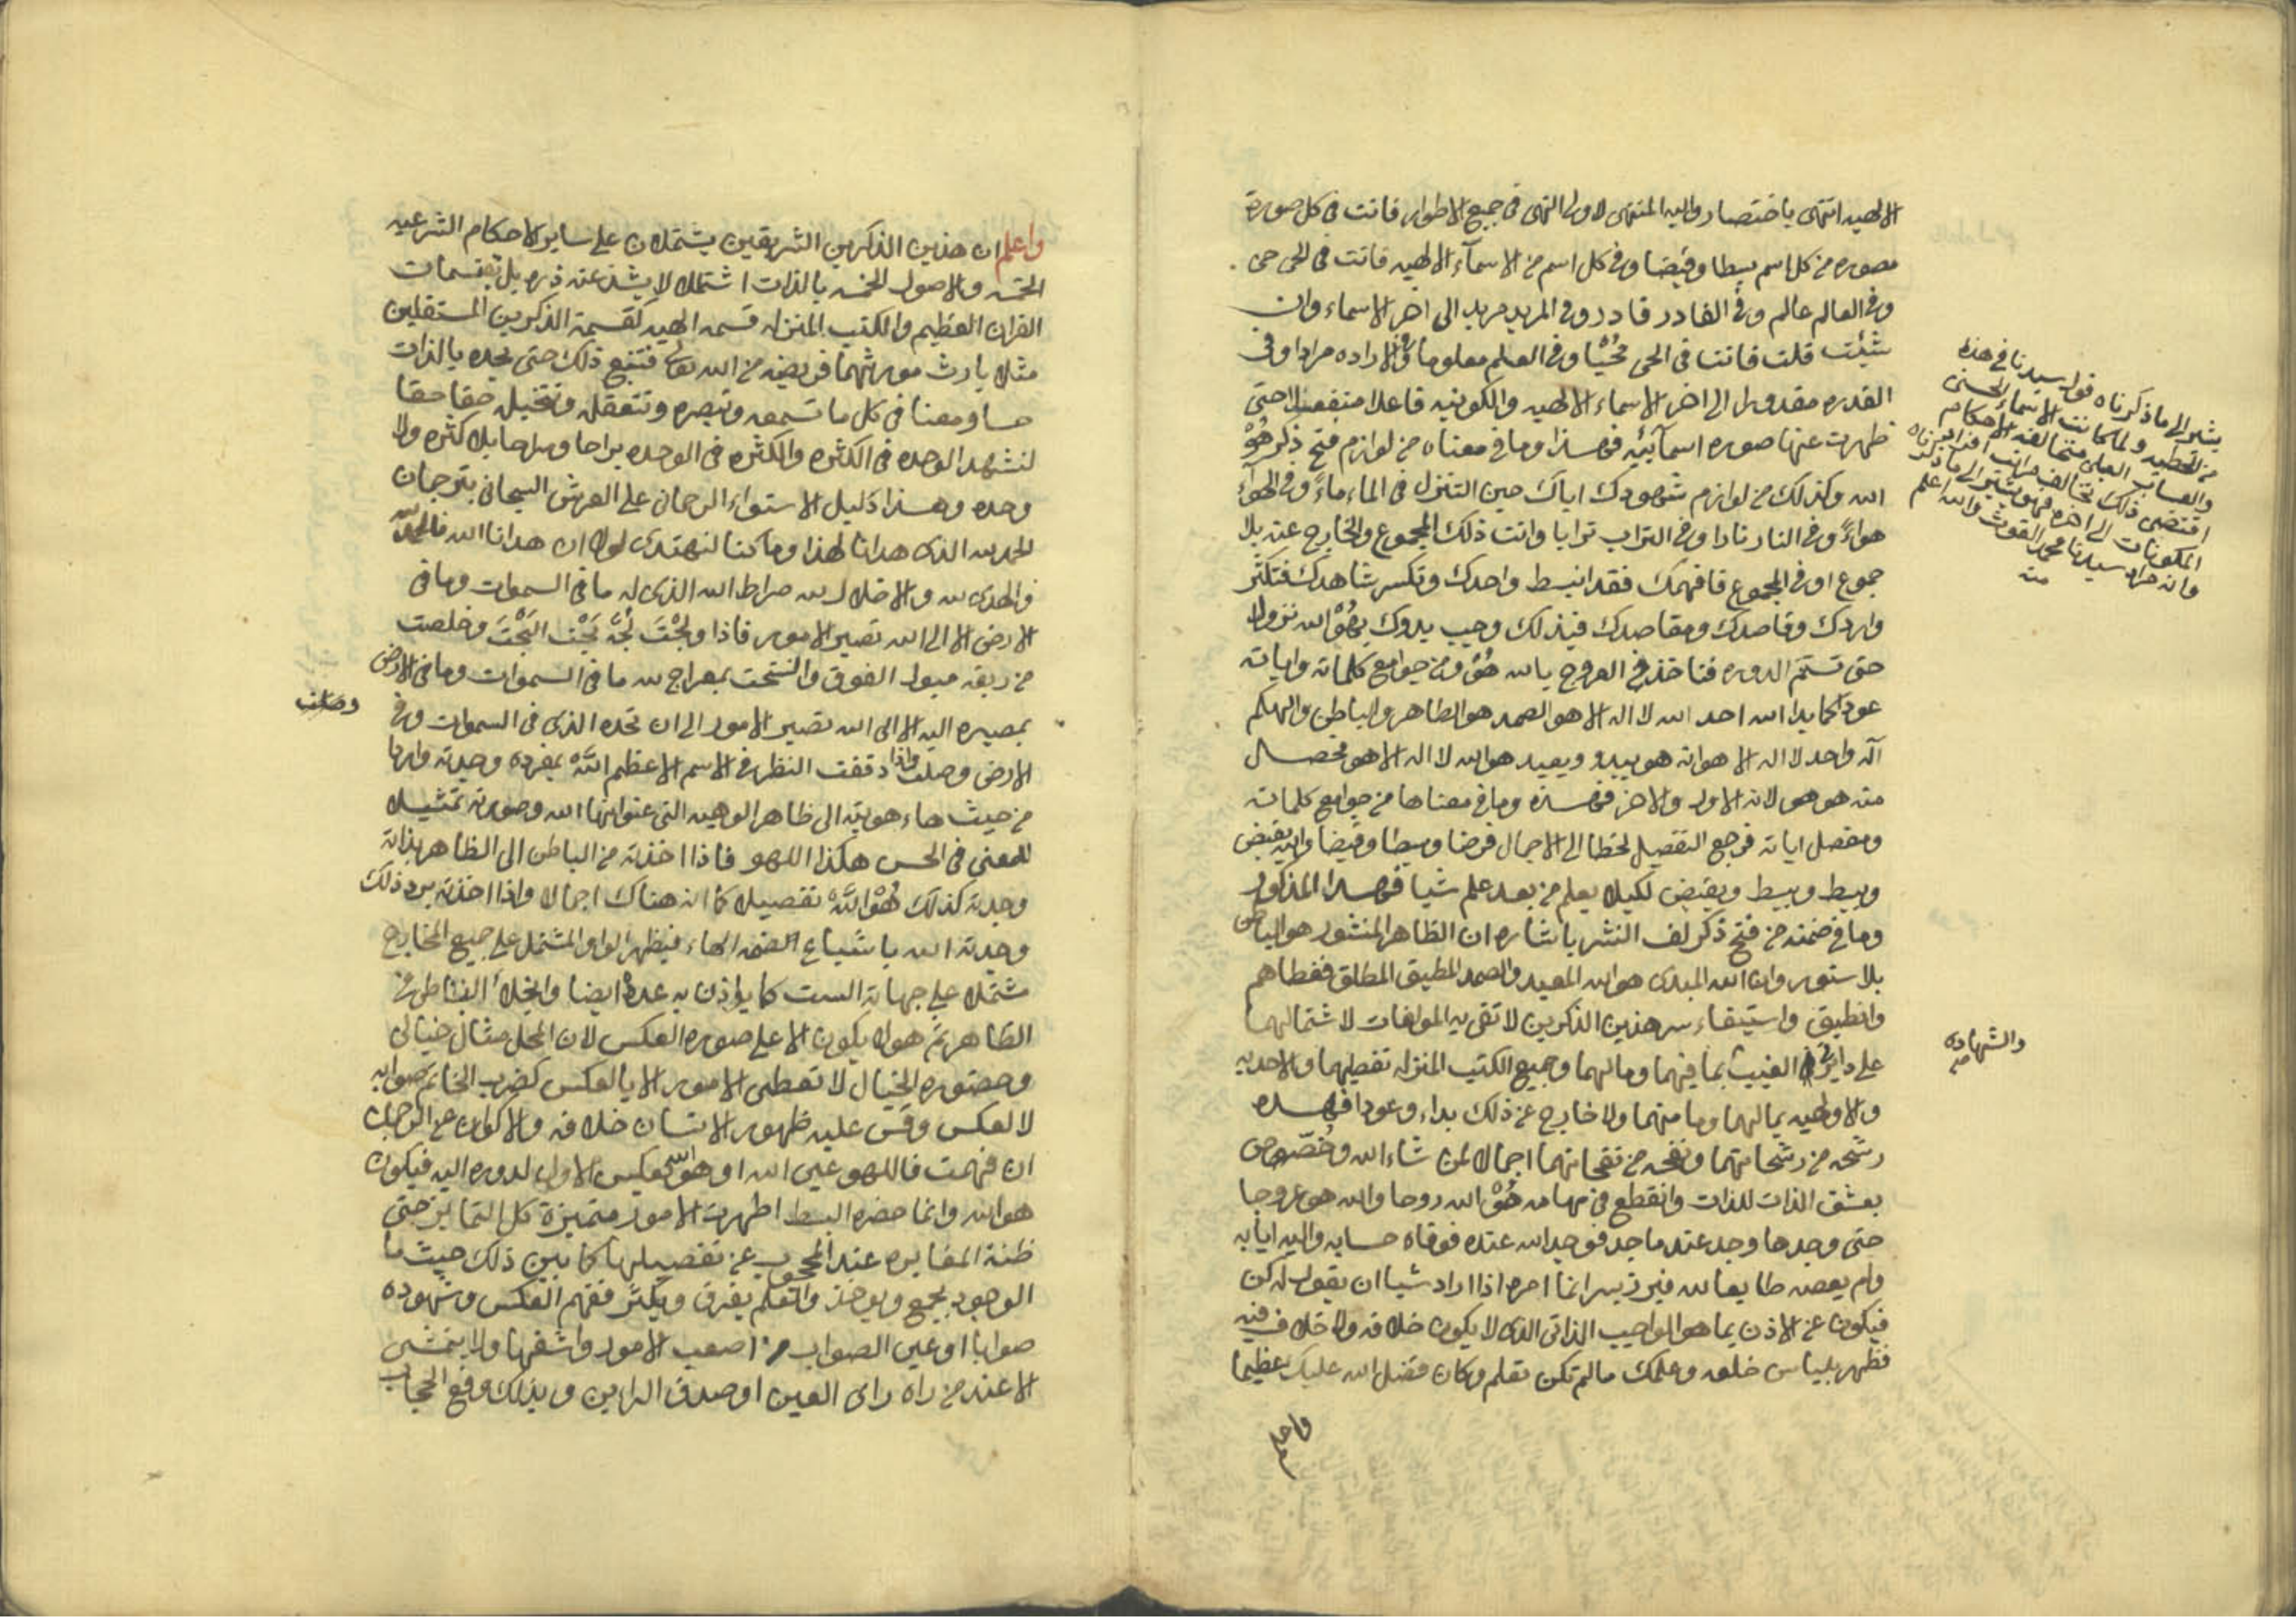 الالهيه انتهى باختصار واليه المنتهى لاولى النهى فى جميع الاطوار فانت فى كل صورة
بصوره من كل اسم بسطا وقبضا وفى كل اسم من الاسمآء الالهيه فانت فى الحى حى
وفى العالم عالم وفى القادر قادر وفى المريد مريد الى اخر الاسماء وان
شئت قلت فانت فى الحى محيًّا وفى العلم معلوما وفى الاراده مرادا وفى
القدره مقدورا الى اخر الاسماء الالهيه والكونيه فاعلا منفعلا حتى
ظهرت عنها صوره اسمآئيه فهذا وما فى معناه من لوازم فتح ذكر هُوْ
الله وكذلك من لوازم شهودك اياك حين التنزل فى الماء ماءً وفى الهوآء
هواءً وفى النار نارا وفى التراب ترابا وانت ذلك المجموع والخارج عنه بلا
جموع او فى المجموع فافهمك فقد انبسط واحدك وتكسر شاهدك فتكثر
واردك وقاصدك ومقاصدك فبذلك وجب بدوك بهُوْ الله نزولا
حتى تستتم الدوره فتاخذ فى العروج بالله هُوْ ومن جوامع كلماته واياته
عودا كما بدا الله احد الله لا اله الا هو الصمد هو الظاهر والباطن والهكم
اله واحد لا اله الا هو انه هو يبدو ويعيد هو الله لا اله الا هو فحصال
منه هو هو لانه الاول والاخر فهذه وما فى معناها من جوامع كلماته
ومفصل اياته فرجع التفصيل لحظا الى الاجمال فرضا وبسطا وقبضا والله يقبض
ويبسط ويبسط ويقبض لكيلا يعلم من بعد علم شيا فهذا المذكور
وما فى ضمنه من فتح ذكر لف النشر باشاره ان الظاهر المنشور هو الباطن
بلا ستور وان الله المبدى هو الله المعيد والصمد المطبق المطلق فغطاهم
وانطبق واستيفاء سر هذين الذكرين لا تفى به المؤلفات لاشتمالهما
على دايرتى الغيب بما فيهما ومالهما وجميع الكتب المنزله تفصيلهما والاحديه
والالوهيه بمالهما وما منهما ولا خارج عن ذلك بداء وعودا فهذه
رشحه من رشحاتهما ونفحه من نفحاتهما اجمالا لمن شاء الله وخُصّوص
بعشق الذات للذات وانقطع فى مهامه هُوْ الله روحا والله هو عروجا
حتى وجدها وجد عنده ماجد فوجد الله عنده فوفاه حسابه واليه ايابه
ولم يعصه طايعا لله انما امره اذا اراد شيا ان يقول له كن
فيكون عن الاذن بما هو الواجب الذاتى الذى لا يكون خلافه ولا خلاف فيه
فظهر بلباس خلعه وعلمك مالم تكن تعلم وكان فضل الله عليك عظيما
واعلم
يشير الى ما ذكرناه قول سيدنا فى هذه
من الخطبه ولما كانت الاسمآء الحسنى
متخالفه الاحكام
اقتضى ذلك تخالف مراتب
المكونات الى اخره فهو يشير الى ما ذكرناه
وانه مراد سيدنا محمد الغوث والله اعلم
منه
والشهاده
صح
واعلم ان هذين الذكرين الشريفين يشتملان على ساير الاحكام الشرعيه
الخمسه والاصول الخمسه بالذات اشتمالا لا يشذ عنه ذره بل يقتسمان
القران العظيم والكتب المنزله قسمه الهيه كقسمة الذكرين المستقلين
مثلا بارث مورثهما فريضه من الله تعالى فتتبع ذلك حتى تجده بالذات
حسا ومعنا فى كل ما تسمعه وتبصره وتتعقله وتتخيله حقا حقا
لتشهد الوحده فى الكثره والكثره فى الوحده براحا وسراحا بلا كثره ولا
وحده وهذا دليل الاستواء الرحمانى على العرش السبحانى بترجمان
الحمد لله الذى هدانا لهذا وما كنا لنهتدى لولا ان هدانا الله فالحمد لله
والهدى لله والاضلال لله صراط الله الذى له ما فى السموات وما فى
الارض الا الى الله تصير الامور فاذا ولجْتَ لُجّة بَحْت البَحْتَ وخلصت
من ربقه ميول الفوق والتحت بمعراج لله ما فى السموات وما فى الارض
بمصيره اليه الا الى الله تصير الامور الى ان تجده الذى فى السموات وفى
الارض وصلت واذا دققت النظر فى الاسم الاعظم اللهُ بمفرده وجدته واردا
من حيث هاء هويته الى ظاهر الوهيه التى عنوانها الله وصورته تمثيلا
للمعنى فى الحس هكذا اللهو فاذا اخذته من الباطن الى الظاهر بذاته
وجدته كذلك هُوْ اللهُ تفصيلا كما انه هناك اجمالا واذا اخذته برد ذلك
وجدته الله باشباع الضمه الهاء فيظهر الواو المشتمل على جميع المخارج
مشتملا على جهاته الست كما يؤذن به عدده ايضا وانجلاء الباطن فى
الظاهر ثم هو لا يكون الا على صوره العكس لان المحل مثال خيالى
وحضره الخيال لا تعطى الامور الا بالعكس كضرب الخاتم صوابه
لا لعكس وقس عليه ظهور الانسان خلافه والاكوان عن الرجل
ان فهمت فاللهو عين الله او هو الله بعكس الاول لدوره اليه فيكون
هو الله وانما حضره البسط اظهرت الامور متميزة كل التمايز حتى
ظنة المغايره عند المحجوب عن تفصيلها كما بين ذلك حيث ما
الوجود يجمع ويوحد والعلم يفرق ويكثر ففهم العكس وشهوده
صوابا او عين الصواب من اصعب الامور واشقها ولا يتمشى
الا عند من راه راى العين او صدق الراين وبذلك وقع الحجاب
وصلت